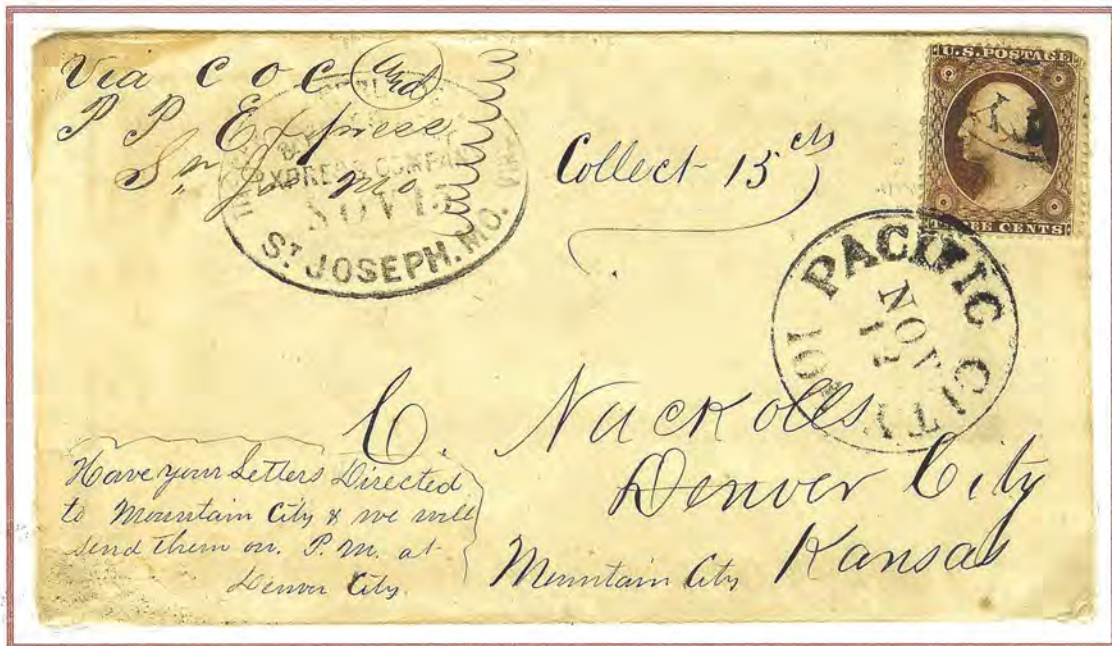 Via C O C and
P P Express
Sn Jo Mo
EXPRESS COMPA
NOV 15
ST JOSEPH. MO.
Collect 15 cts
U.S. POSTAGE
THREE CENTS
PACIFIC CITY
NOV
12
C. Nuckolls
Denver City
Kansas
Mountain City
Have your Letters Directed
to Mountain City & we will
send them on. P. M. at
Denver City.